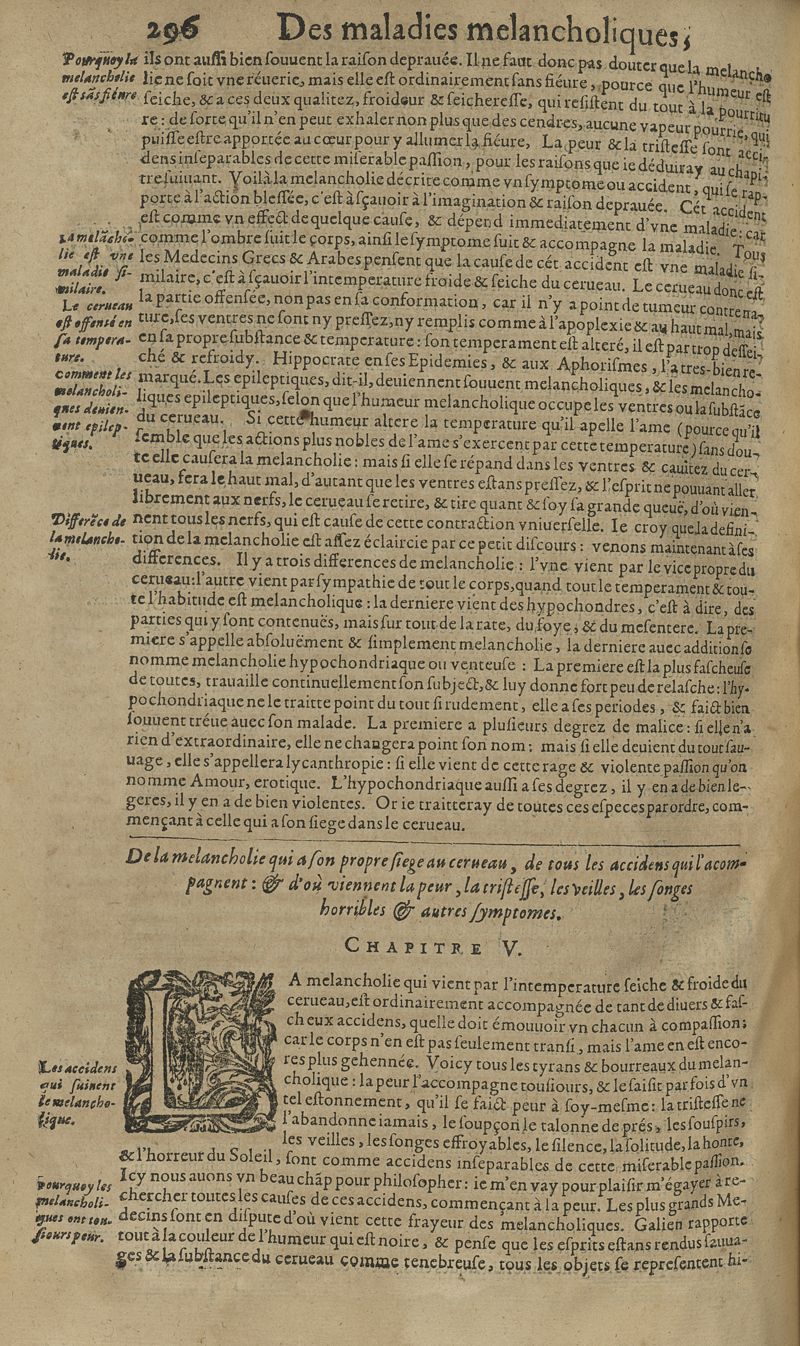 296 Des maladies melancholiques,
Pourquoy la
melancholie
est sās fiéure
ils ont auſſi bien ſouuent la raiſon deprauée. Il ne faut donc pas douter que la melancho
lie ne ſoit vne réuerie, mais elle eſt ordinairement ſans fiéure, pource que l'humeur eſt
ſeiche, & a ces deux qualitez, froideur & ſeichereſſe, qui reſiſtent du tout à la pourritu
re: de ſorte qu'il n'en peut exhaler non plus que des cendres, aucune vapeur pourrie, qui
puiſſe eſtre apportée au cœur pour y allumer la fiéure. La peur & la triſteſſe ſont acci-
dens inſeparables de cette miſerable paſſion, pour les raiſons que ie déduiray au chapi-
tre ſuiuant. Voilà la melancholie décrite comme vn ſymptome ou accident, qui ſe rap-
porte à l'action bleſſée, c'eſt à ſçauoir à l'imagination & raiſon deprauée. Cét accident
eſt comme vn effect de quelque cauſe, & dépend immediatement d'vne maladie: car
La melācho-
lie est vne
maladie ſi-
milaire.
Le cerueau
est offensé en
ſa tempera-
ture.
comment les
melancholi-
ques deuien-
nent epilep-
tiques.
comme l'ombre ſuit le corps, ainſi le ſymptome ſuit & accompagne la maladie. Tous
les Medecins Grecs & Arabes penſent que la cauſe de cét accident eſt vne maladie ſi-
milaire, c'eſt à ſçauoir l'intemperature froide & ſeiche du cerueau. Le cerueau donc eſt
la partie offenſée, non pas en ſa conformation, car il n'y a point de tumeur contre na-
ture, ſes ventres ne ſont ny preſſez, ny remplis comme à l'apoplexie & au haut mal, mais
en ſa propre ſubſtance & temperature: ſon temperament eſt alteré, il eſt par trop deſſei-
ché & refroidy. Hippocrate en ſes Epidemies, & aux Aphoriſmes, l'a tres-bien re-
marqué. Les epileptiques, dit-il, deuiennent ſouuent melancholiques, & les melancho-
liques epileptiques, ſelon que l'humeur melancholique occupe les ventres ou la ſubſtāce
du cerueau. Si cette humeur altere la temperature qu'il apelle l'ame (pource qu'il
ſemble que les actions plus nobles de l'ame s'exercent par cette temperature) ſans dou-
te elle cauſera la melancholie: mais ſi elle ſe répand dans les ventres & cauitez du cer-
ueau, fera le haut mal, d'autant que les ventres eſtans preſſez, & l'eſprit ne pouuant aller
librement aux nerfs, le cerueau ſe retire, & tire quant & ſoy ſa grande queuë, d'où vien-
Differēce de
la melancho-
lie.
nent tous les nerfs, qui eſt cauſe de cette contraction vniuerſelle. Ie croy que la defini-
tion de la melancholie eſt aſſez éclaircie par ce petit diſcours: venons maintenant à ſes
differences. Il y a trois differences de melancholie: l'vne vient par le vice propre du
cerueau: l'autre vient par ſympathie de tout le corps, quand tout le temperament & tou-
te l'habitude eſt melancholique: la derniere vient des hypochondres, c'eſt à dire, des
parties qui y ſont contenuës, mais ſur tout de la rate, du foye, & du meſentere. La pre-
miere s'appelle abſoluëment & ſimplement melancholie, la derniere auec addition ſe
nomme melancholie hypochondriaque ou venteuſe: La premiere eſt la plus faſcheuſe
de toutes, trauaille continuellement ſon ſubject, & luy donne fort peu de relaſche: l'hy-
pochondriaque ne le traitte point du tout ſi rudement, elle a ſes periodes, & faict bien
ſouuent tréue auec ſon malade. La premiere a pluſieurs degrez de malice: ſi elle n'a
rien d'extraordinaire, elle ne changera point ſon nom; mais ſi elle deuient du tout ſau-
uage, elle s'appellera lycanthropie: ſi elle vient de cette rage & violente paſſion qu'on
nomme Amour, erotique. L'hypochondriaque auſſi a ſes degrez, il y en a de bien le-
geres, il y en a de bien violentes. Or ie traitteray de toutes ces eſpeces par ordre, com-
mençant à celle qui a ſon ſiege dans le cerueau.
De la melancholie qui a ſon propre ſiege au cerueau, de tous les accidens qui l'acom-
pagnent: & d'où viennent la peur, la triſteſſe, les veilles, les ſonges
horribles & autres ſymptomes.
CHAPITRE V.
LA melancholie qui vient par l'intemperature ſeiche & froide du
cerueau, eſt ordinairement accompagnée de tant de diuers & faſ-
cheux accidens, quelle doit émouuoir vn chacun à compaſſion;
car le corps n'en eſt pas ſeulement tranſi, mais l'ame en eſt enco-
Les accidens
qui ſuiuent
le melancho-
lique.
res plus gehennée. Voicy tous les tyrans & bourreaux du melan-
cholique: la peur l'accompagne touſiours, & le ſaiſit par fois d'vn
tel eſtonnement, qu'il ſe faict peur à ſoy-meſme: la triſteſſe ne
l'abandonne iamais, le ſoupçon le talonne de prés, les ſouſpirs,
les veilles, les ſonges effroyables, le ſilence, la ſolitude, la honte,
& l'horreur du Soleil, ſont comme accidens inſeparables de cette miſerable paſſion.
Pourquoy les
melancholi-
ques ont tou-
ſiours peur.
Icy nous auons vn beau chāp pour philoſopher: ie m'en vay pour plaiſir m'égayer à re-
chercher toutes les cauſes de ces accidens, commençant à la peur. Les plus grands Me-
decins ſont en diſpute d'où vient cette frayeur des melancholiques. Galien rapporte
tout à la couleur de l'humeur qui eſt noire, & penſe que les eſprits eſtans rendus ſauua-
ges & la ſubſtance du cerueau comme tenebreuſe, tous les objets ſe repreſentent hi-